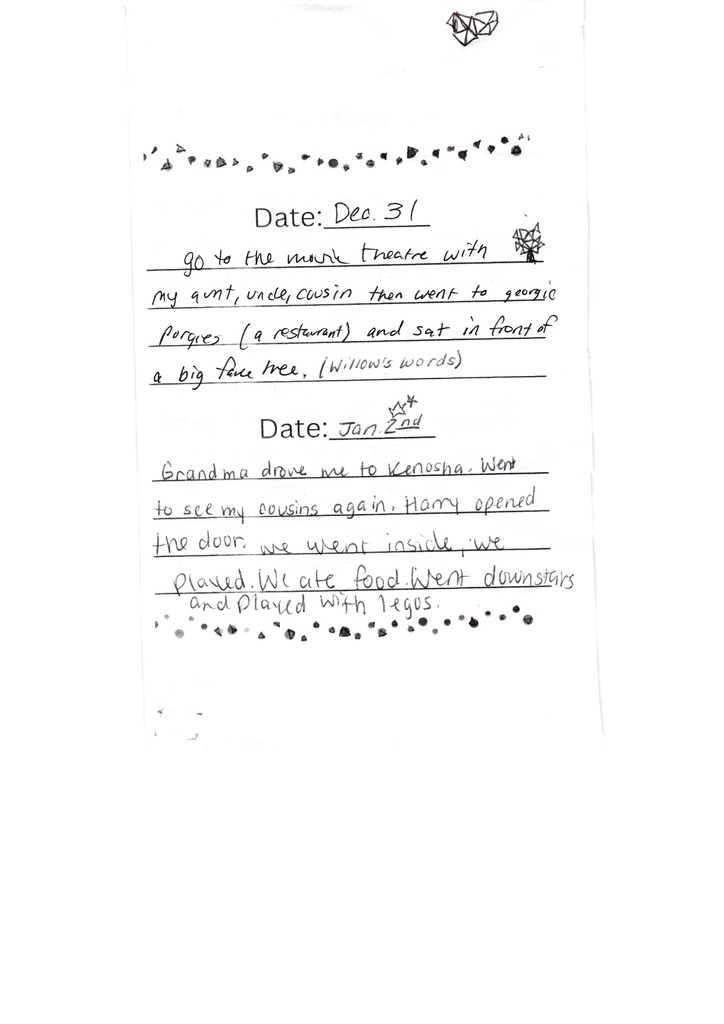 Date: Dec. 31
go to the movie theatre with
my aunt, uncle, cousin then went to georgie
Porgies (a restaurant) and sat in front of
a big tree. (Willow's words)
Date: Jan. 2nd
Grandma drove me to Kenosha. Went
to see my cousins again. Harry opened
the door. we went inside, we
played. We ate food. Went downstairs
and played with legos.